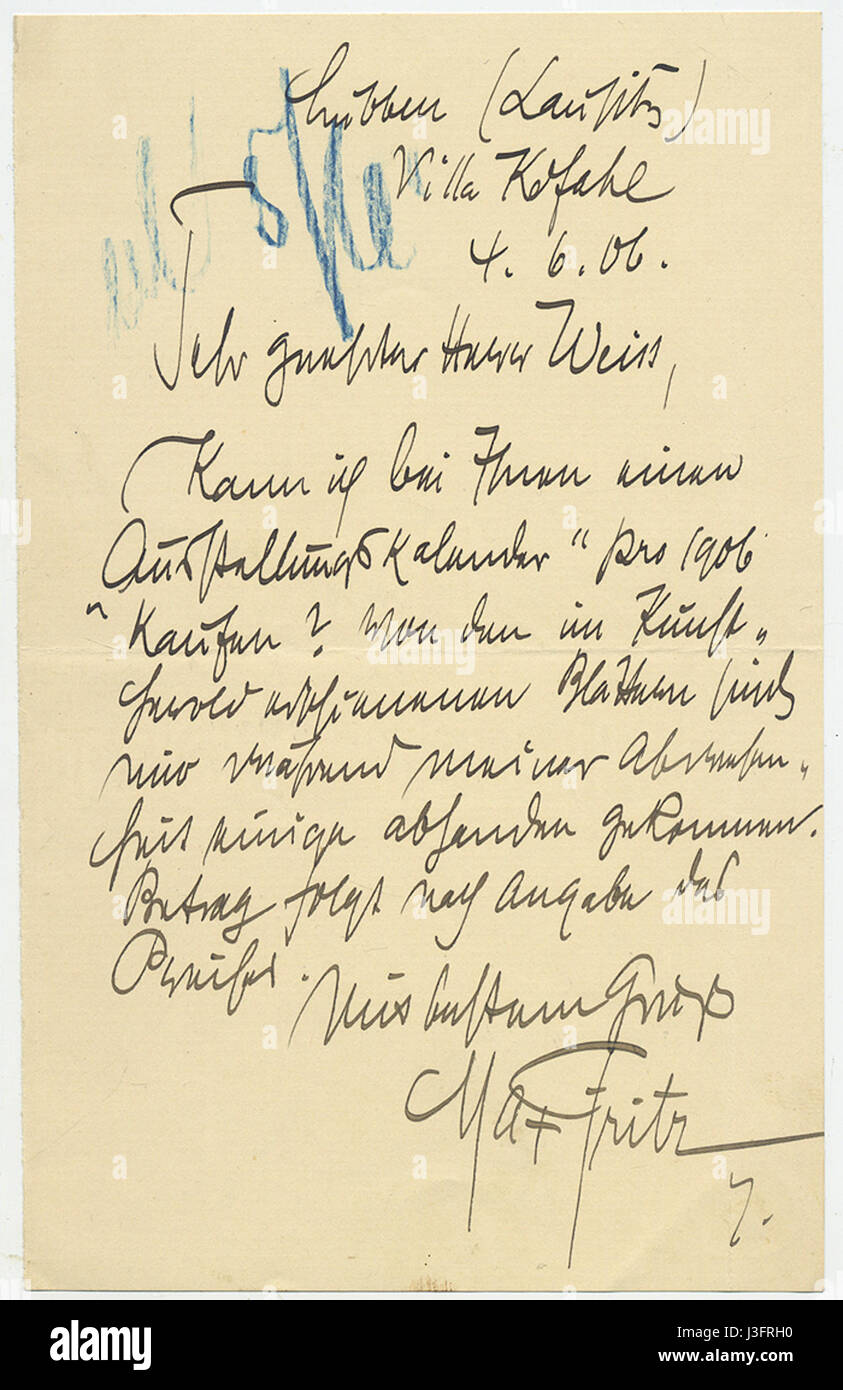 Lübben (Lausitz)
Villa Kofahl
4. 6. 06.
Sehr geehrter Herr Weiss,
Kann ich bei Ihnen einen
"Ausstellungskalender" pro 1906
kaufen? Von den im Kunst-
herold erschienenen Blättern sind
mir während meiner Abwesen-
heit einige abhanden gekommen.
Betrag folgt nach Angabe des
Preises.
Mit bestem Gruß
Max Fritz
7.
a alamy
alamy stock photo
J3FRH0
www.alamy.com